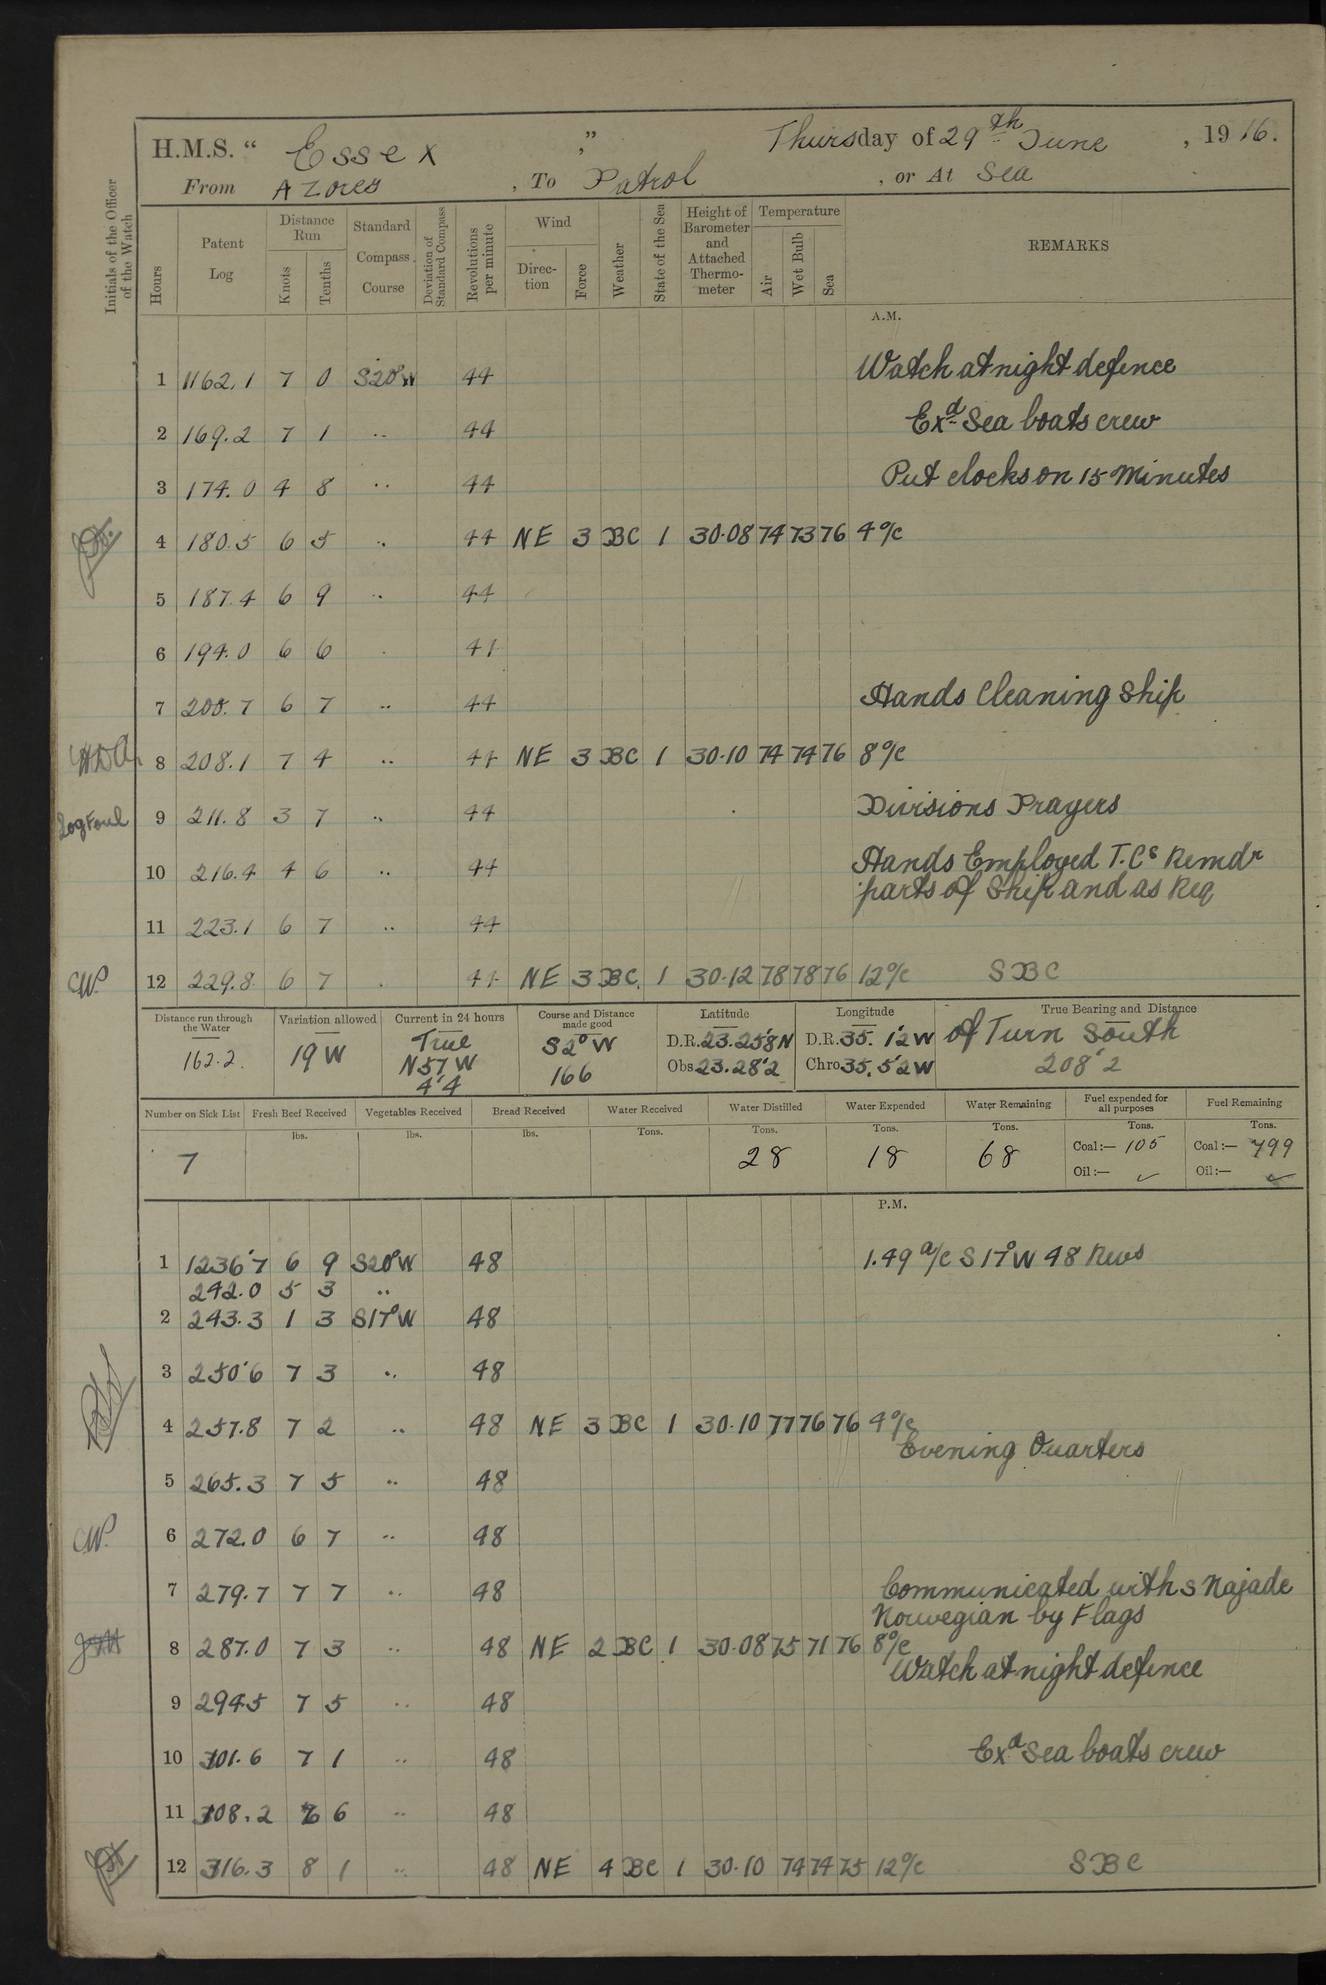 H.M.S. “ Essex ,” Thursday of 29th June , 1916.
From Azores , To Patrol , or At Sea
Initials of the Officer of the Watch
Hours Patent Log Distance Run Knots Tenths Standard Compass Course Deviation of Standard Compass Revolutions per minute Wind Direc-tion Force Weather State of the Sea Height of Barometer and Attached Thermo-meter Temperature Air Wet Bulb Sea REMARKS
A.M.
1 1162.1 7 0 S20°W 44 Watch at night defence
2 169.2 7 1 .. 44 Exd Sea boats crew
3 174.0 4 8 .. 44 Put clocks on 15 Minutes
4 180.5 6 5 .. 44 NE 3 BC 1 30.08 74 73 76 4 o/c
5 187.4 6 9 .. 44
6 194.0 6 6 . 44
7 200.7 6 7 .. 44 Hands Cleaning Ship
8 208.1 7 4 .. 44 NE 3 BC 1 30.10 74 74 76 8 o/c
Log Foul 9 211.8 3 7 .. 44 Divisions Prayers
10 216.4 4 6 .. 44 Hands Employed T.Cs Remdr
parts of Ship and as Req
11 223.1 6 7 .. 44
CW. 12 229.8 6 7 . 44 NE 3 BC 1 30.12 78 78 76 12 o/c SBC
Distance run through the Water Variation allowed Current in 24 hours Course and Distance made good Latitude Longitude True Bearing and Distance
162.2. 19 W True N57W 4'4 S2°W 166 D.R. 23.25'8N Obs 23.28'2 D.R. 35.1'2W Chro 35.5'2W of Turn South 208'2
Number on Sick List Fresh Beef Received Vegetables Received Bread Received Water Received Water Distilled Water Expended Water Remaining Fuel expended for all purposes Fuel Remaining
lbs. lbs. lbs. Tons. Tons. Tons. Tons. Tons. Tons.
7 28 18 68 Coal:— 105 Coal:— 799
Oil:— ✓ Oil:— ✓
P.M.
1 1236'7 6 9 S20°W 48 1.49 a/c S17°W 48 Revs
242.0 5 3 ..
2 243.3 1 3 S17°W 48
3 250'6 7 3 .. 48
4 257.8 7 2 .. 48 NE 3 BC 1 30.10 77 76 76 4 o/c
Evening Quarters
5 265.3 7 5 .. 48
CW. 6 272.0 6 7 .. 48
7 279.7 7 7 .. 48 Communicated with s Najade
Norwegian by Flags
8 287.0 7 3 .. 48 NE 2 BC 1 30.08 75 71 76 8 o/c
Watch at night defence
9 294.5 7 5 .. 48
10 301.6 7 1 .. 48 Exd Sea boats crew
11 308.2 6 6 .. 48
12 316.3 8 1 .. 48 NE 4 BC 1 30.10 74 74 75 12 o/c SBC